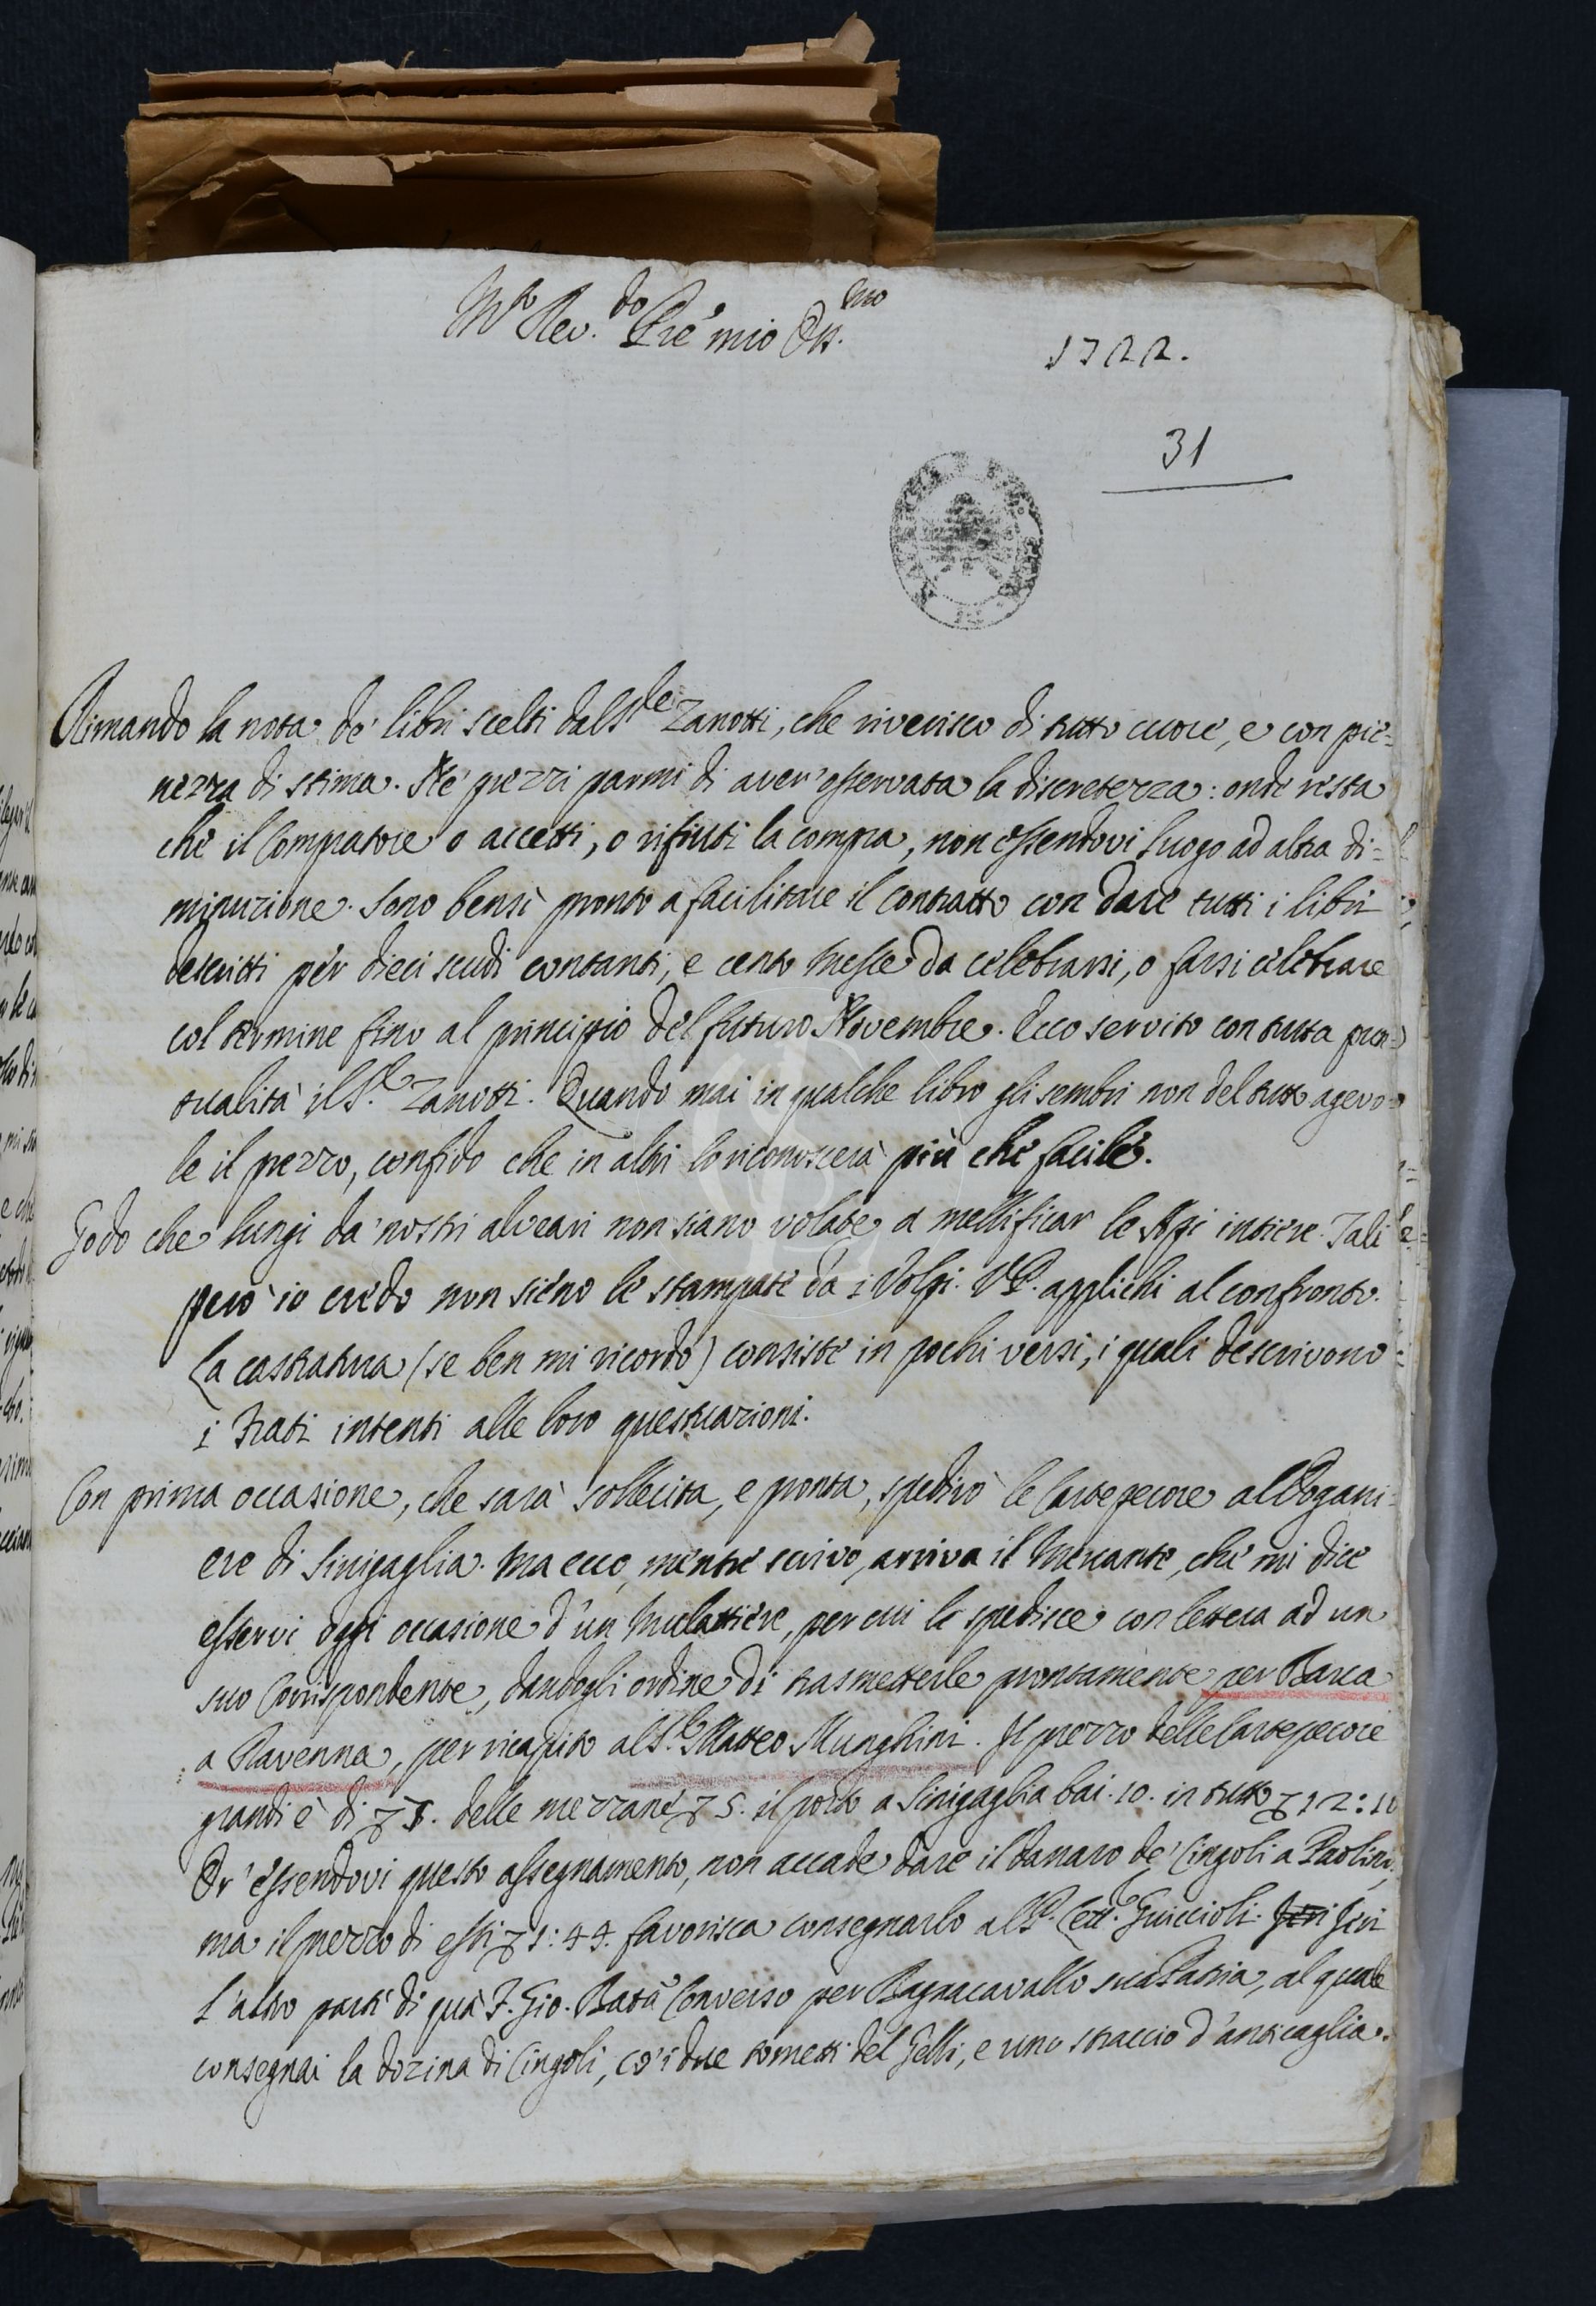 M.to Rev.do Pre' mio Oss.mo
1722.
31
Rimando la nota de' libri scelti dal S.le Zanotti, che riverisco di tutto cuore, e con pie=
nezza di stima. Ne' prezzi parmi di aver' osservata la discretezza: onde resta
che il Compratore o accetti, o rifiuti la compra, non essendovi luogo ad altra di=
minuzione. Sono bensì pronto a facilitare il contratto con dare tutti i libri
descritti per dieci scudi contanti, e cento Messe da celebrarsi, o farsi celebrare
col termine fino al principio del futuro Novembre. Ecco servito con tutta pun=
tualità il S.r Zanotti. Quando mai in qualche libro gli sembri non del tutto agevo=
le il prezzo, confido che in altri lo riconoscerà più che facile.
Godo che lungi da' nostri alveari non siano volate a mellificar le Api intiere. Tali
però io credo non sieno le stampate da i Volpi. V.P. applichi al confronto.
La castratura (se ben mi ricordo) consiste in pochi versi, i quali descrivono
i Frati intenti alle loro questuazioni.
Con prima occasione, che sarà sollecita, e pronta, spedirò le Cartepecore al Dogani=
ere di Sinigaglia. Ma ecco, mentre scrivo, arriva il Mercante, che mi dice
esservi oggi occasione d'un Mulattiere, per cui le spedisce con lettera ad un
suo Corrispondente, dandogli ordine di trasmetterle prontamente per Barca
a Ravenna, per ricapito al S.r Matteo Munghini. Il prezzo delle Cartepecore
grandi è di delle mezzane 5. il porto a Sinigaglia bai. 10. in tutto 12: 10
Or' essendovi questo assegnamento, non accade dare il danaro de' Cingoli a Paolini,
ma il prezzo di essi 1: 44. favorisca consegnarlo al P. Lett.e Guiccioli. Jeri Jeri
l'altro partì di quà F. Gio. Batta Converso per Bagnacavallo sua Patria, al quale
consegnai la dozina di Cingoli, co' i due tometti del Gelli, e uno straccio d'anticaglia.